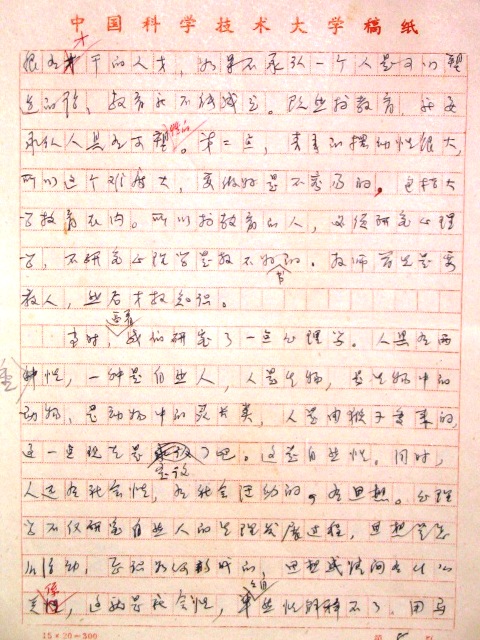 中国科学技术大学稿纸
很有才干的人才，如果不承认一个人是可以塑
造的话，教育就不能成立。既然搞教育，就要
承认人具有可塑性的。第二点，青年的摆动性很大，
所以这个难度大，要做好是不容易的，包括大
学教育在内。所以搞教育的人，必须研究心理
学，不研究心理学是教不好书的。教师首先是要
教人，然后才教知识。
当时，我们研究了一点心理学。人具有两
重性，一种是自然人，人是生物，是生物中的
动物，是动物中的灵长类，人是由猴子变来的，
这一点现在是定议了吧。这是自然性。同时，
人还有社会性，有社会活动的，有思想。心理
学不仅研究自然人的生理发展过程，思想意志
的活动，意识如何形成的，思想感情间有什么
关系，这就是社会性，单自然性解释不了。用马
15×20=300
第 页